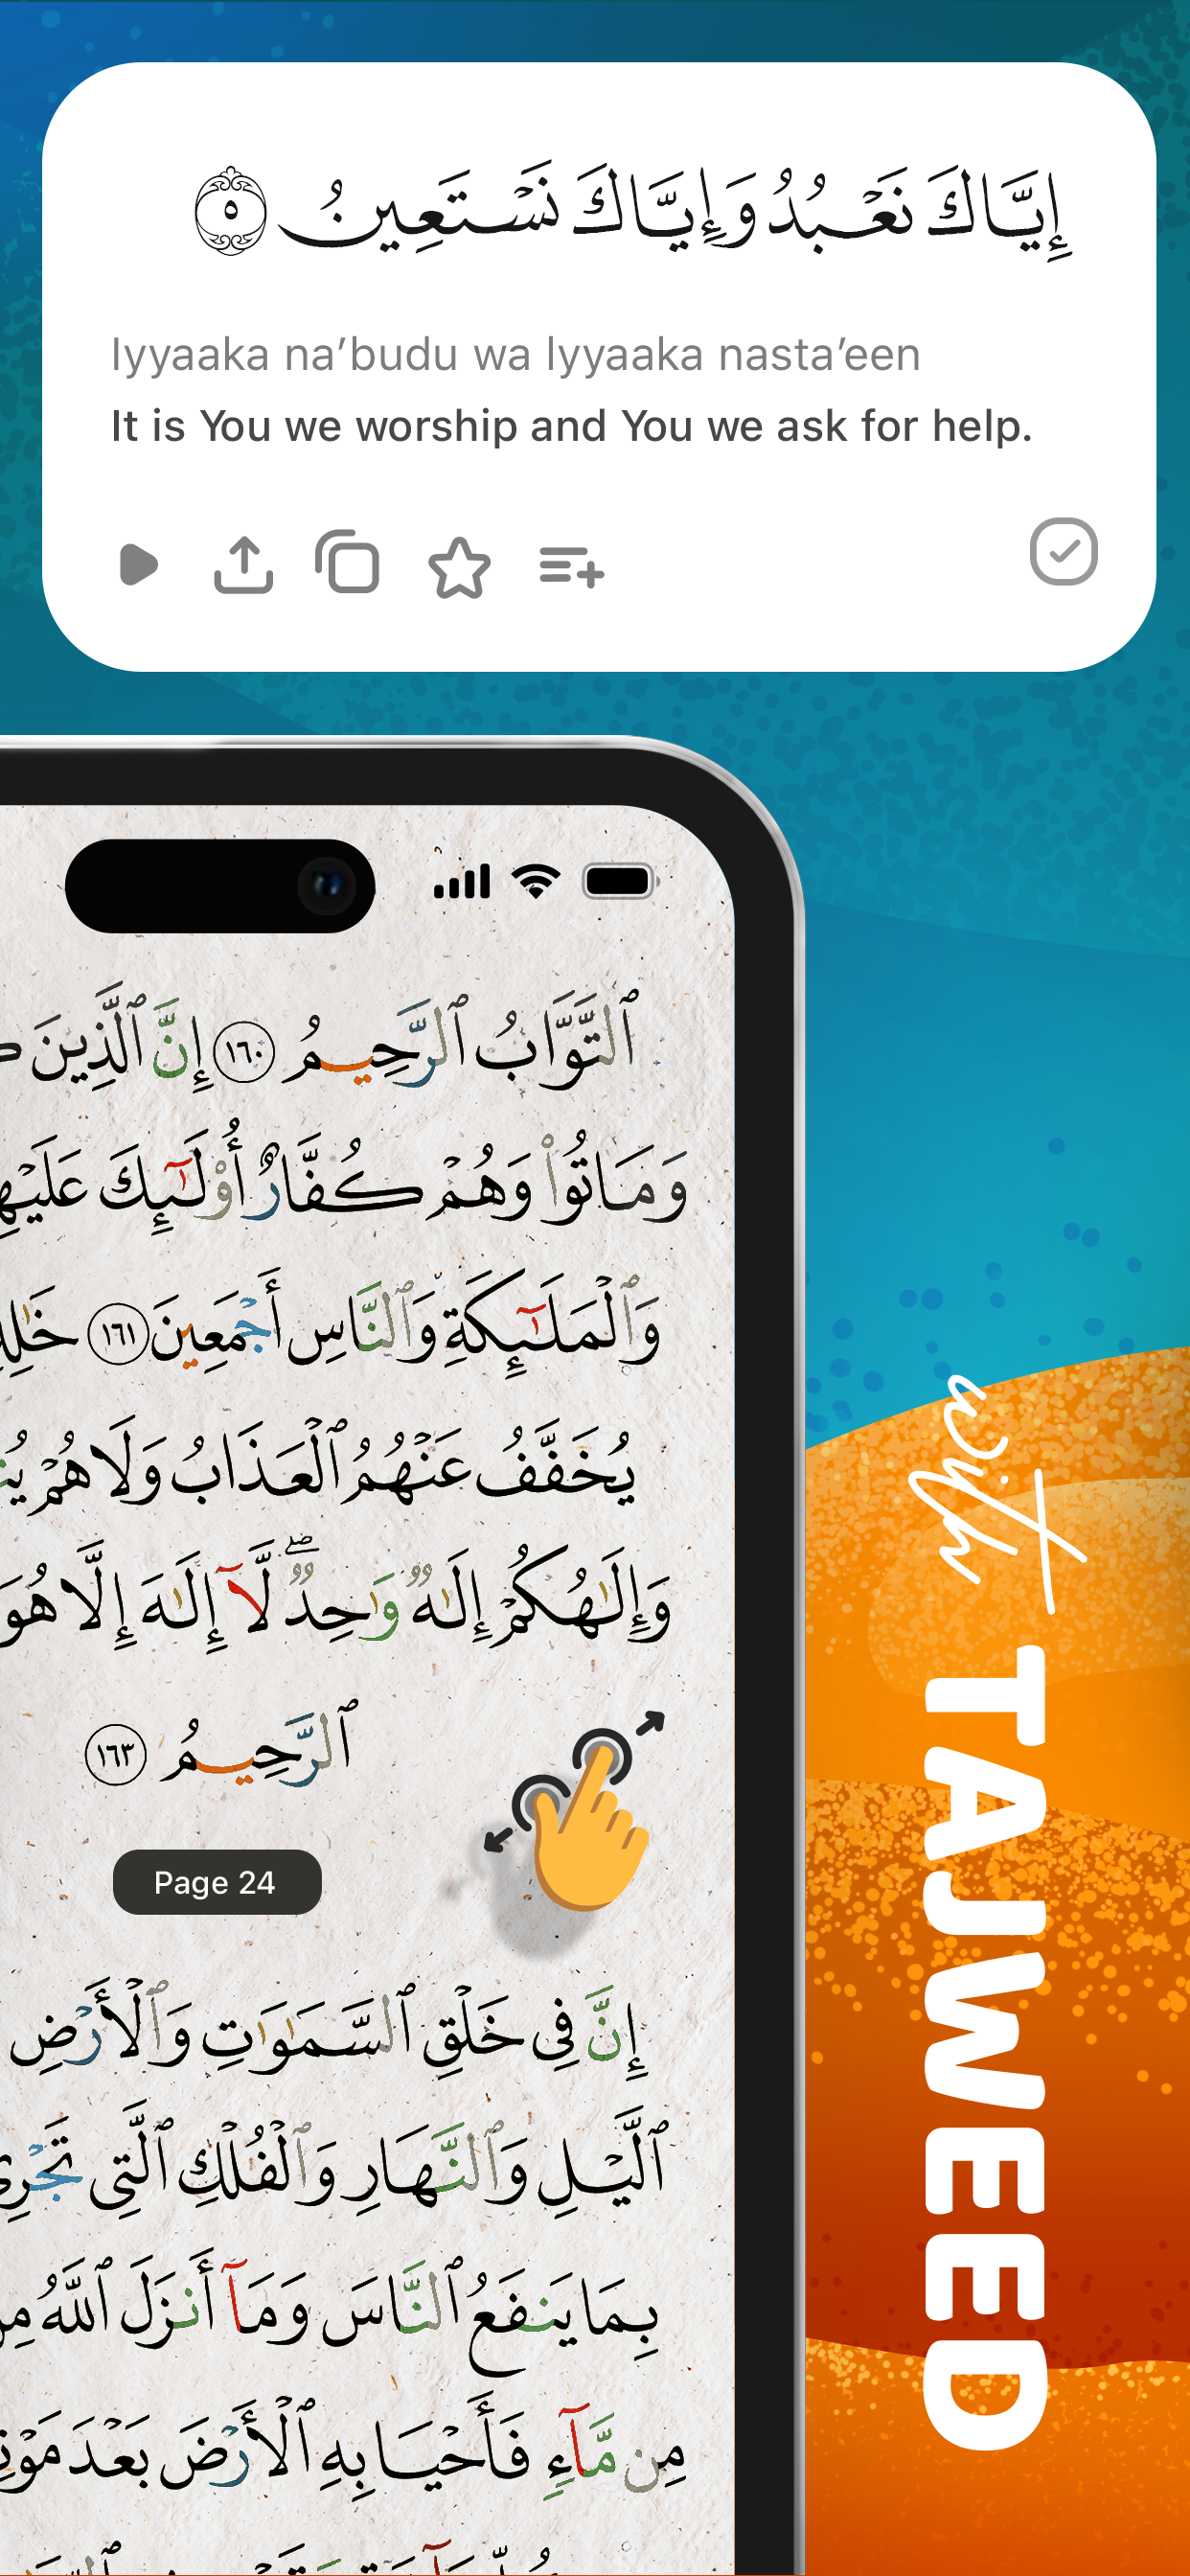 إِيَّاكَ نَعْبُدُ وَإِيَّاكَ نَسْتَعِينُ ٥
Iyyaaka na’budu wa lyyaaka nasta’een
It is You we worship and You we ask for help.
ٱلتَّوَّابُ ٱلرَّحِيمُ ١٦٠ إِنَّ ٱلَّذِينَ
وَمَاتُوا۟ وَهُمْ كُفَّارٌ أُو۟لَـٰٓئِكَ
وَٱلْمَلَـٰٓئِكَةِ وَٱلنَّاسِ أَجْمَعِينَ ١٦١
يُخَفَّفُ عَنْهُمُ ٱلْعَذَابُ وَلَا هُمْ
وَإِلَـٰهُكُمْ إِلَـٰهٌ وَٰحِدٌ ۖ لَّآ إِلَـٰهَ إِلَّا هُوَ
ٱلرَّحِيمُ ١٦٣
Page 24
إِنَّ فِى خَلْقِ ٱلسَّمَـٰوَٰتِ وَٱلْأَرْضِ
ٱلَّيْلِ وَٱلنَّهَارِ وَٱلْفُلْكِ ٱلَّتِى تَجْرِى
بِمَا يَنفَعُ ٱلنَّاسَ وَمَآ أَنزَلَ ٱللَّهُ
مِن مَّآءٍ فَأَحْيَا بِهِ ٱلْأَرْضَ بَعْدَ
with TAJWEED